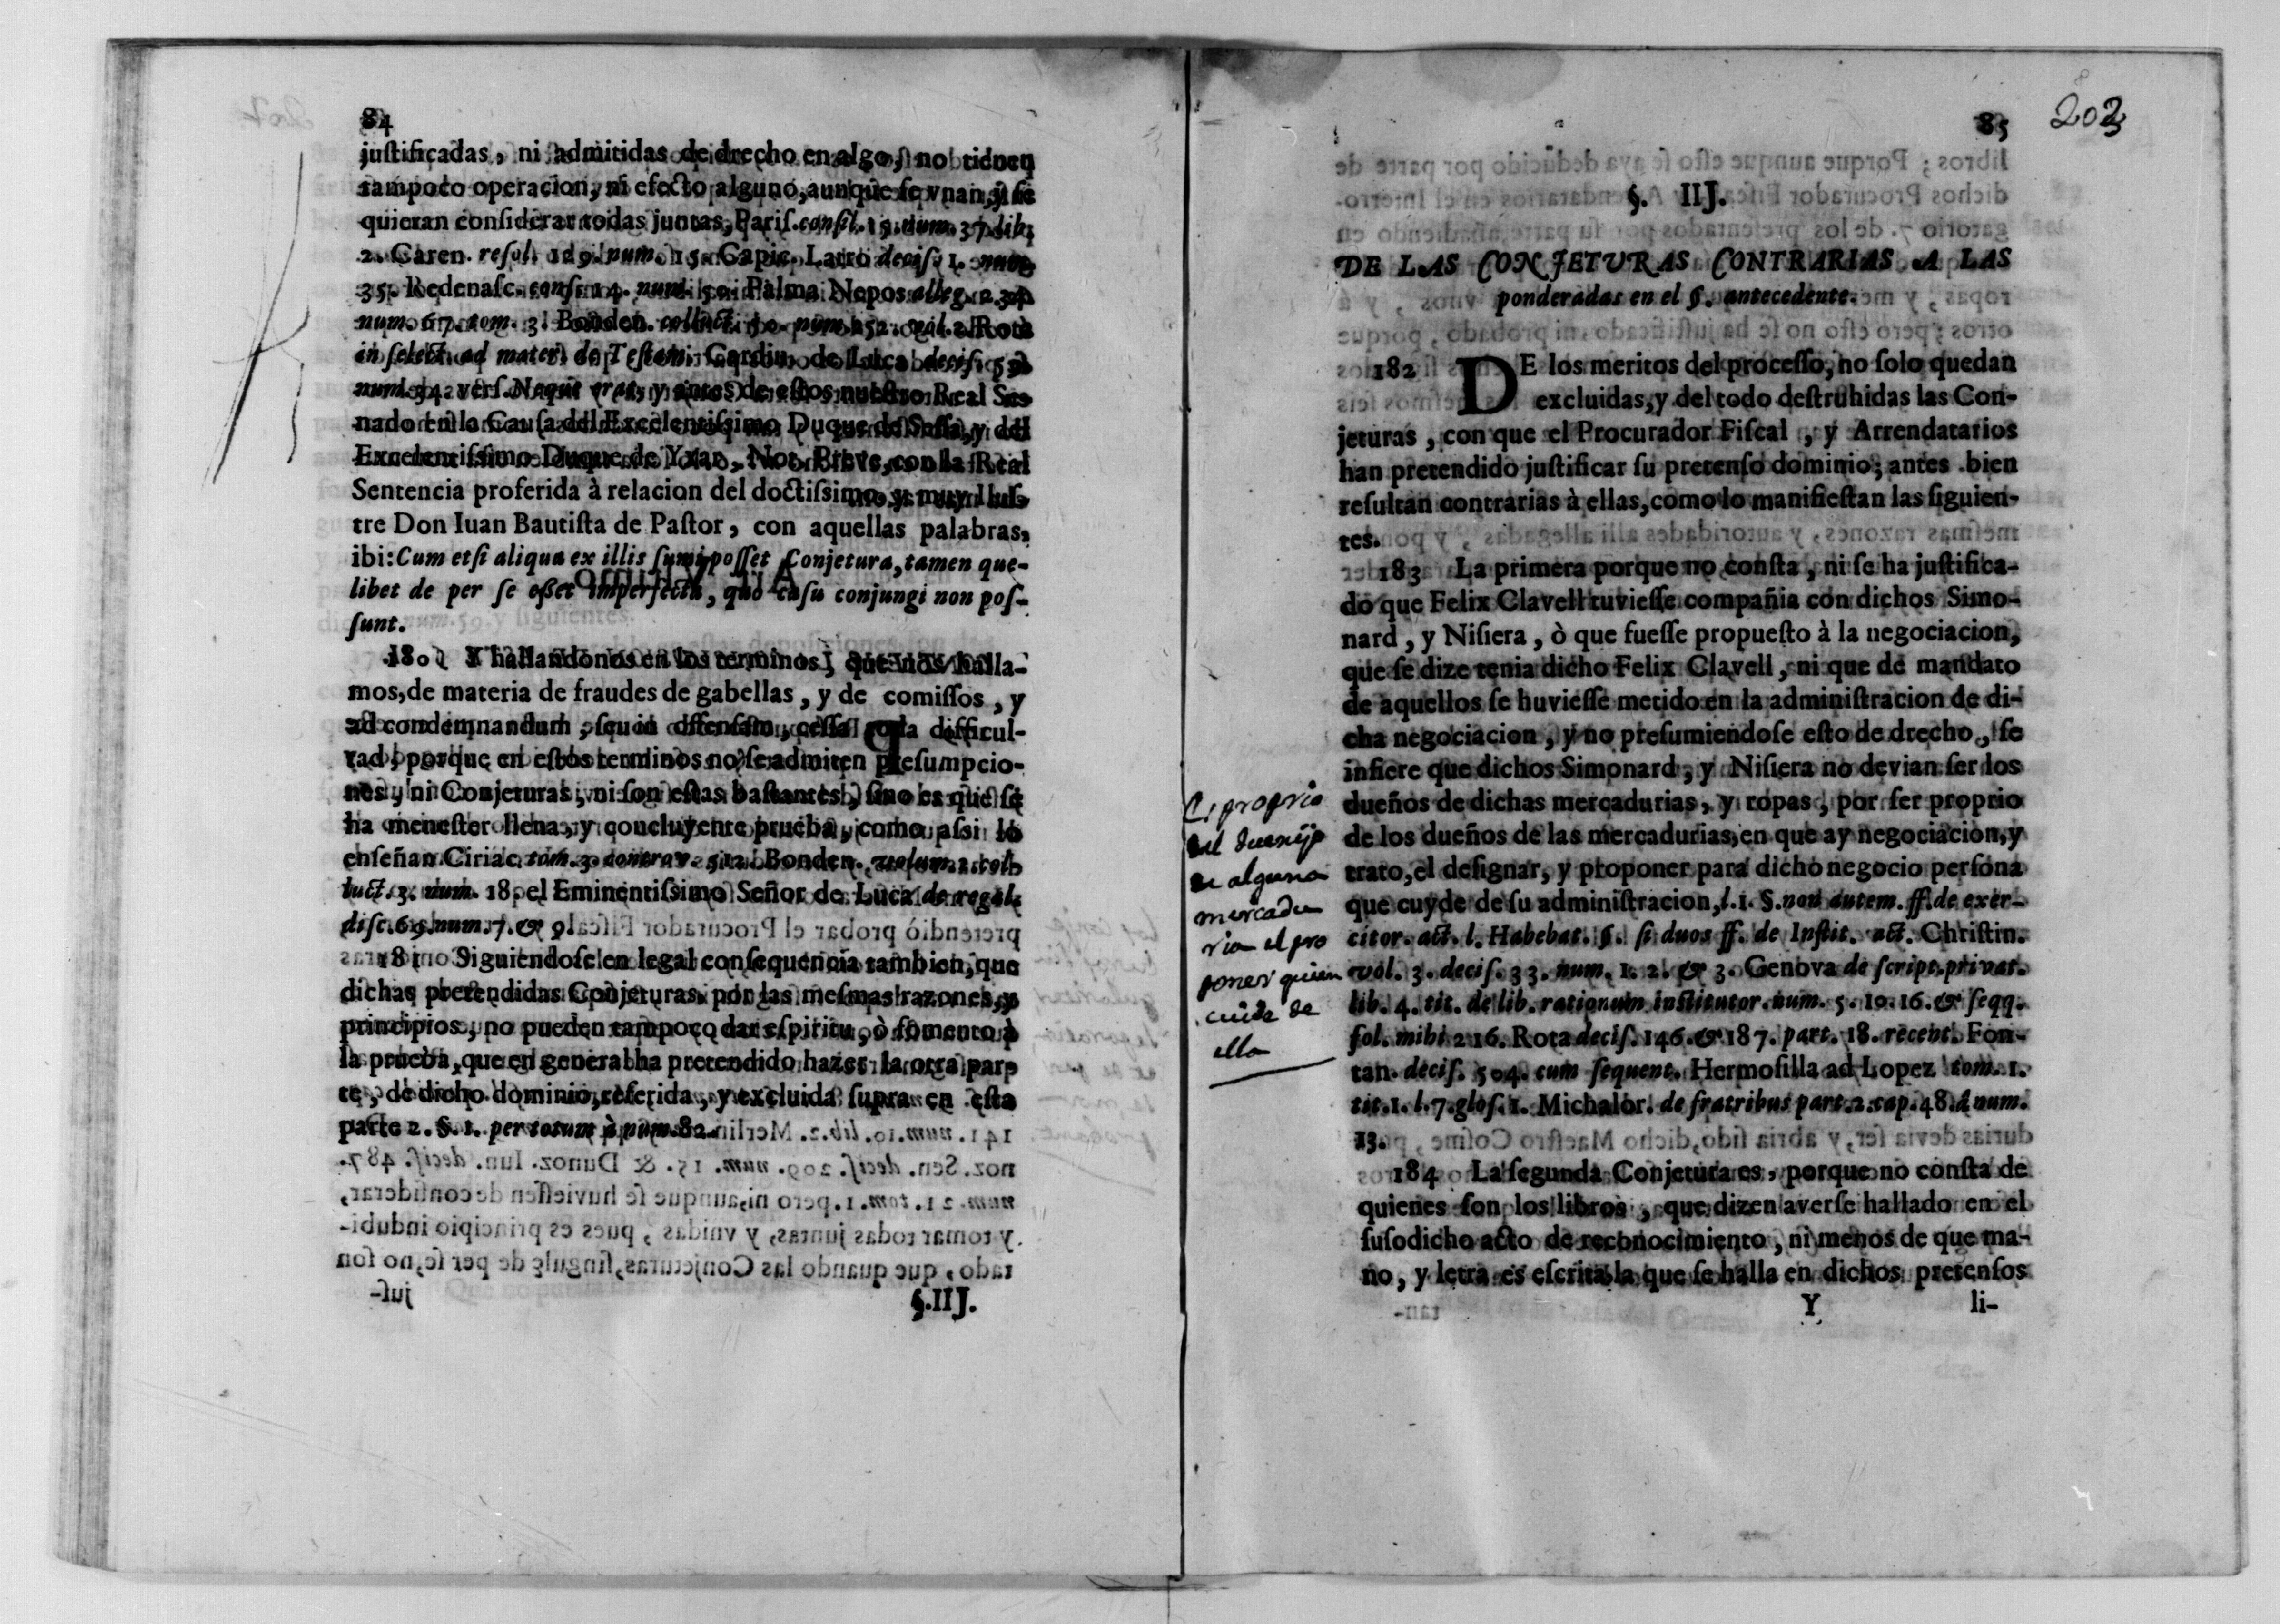 84
justificadas, ni admitidas de drecho en algo, no tienen
tampoco operacion, ni efecto alguno, aunque se vnan, y se
quieran considerar todas juntas, Paris. consil. 19. num. 37. lib.
2. Caren. resol. num. 15. Capic. Latro decis. 1. num.
35. Redenasc. cons. 14. num. 50. Palma Nepos alleg. 234.
num. 67. tom. 3. Bonden. collect. num. 152. vol. 2. Rota
in select. ad mater. de Testam. Cardin. de Luca decis.
num. 34. vers. Neque y antes de estos nuestro Real Se-
nado en la Causa del Excelentissimo Duque de Sessa, y del
Excelentissimo Duque de Yxar, Not. Pitvs, con la Real
Sentencia proferida à relacion del doctissimo y muy Ilus-
tre Don Iuan Bautista de Pastor, con aquellas palabras,
ibi: Cum etsi aliqua ex illis sumi posset Conjetura, tamen que-
libet de per se esset imperfecta, quo casu conjungi non pos-
sunt.
180 Y hallandonos en los terminos, que nos halla-
mos, de materia de fraudes de gabellas, y de comissos, y
ad condemnandum, seu in offensam, cessa toda difficul-
tad, porque en estos terminos no se admiten presumpcio-
nes, ni Conjeturas, ni son estas bastantes, sino es que se
ha menester llena, y concluyente prueba, como assi lo
enseñan Ciriac. tom. 3. contrav. 512. Bonden. volum. 2. col-
luct. 3. num. 18. el Eminentissimo Señor de Luca de regal.
disc. 69. num. 7. & 9.
181 Siguiendose en legal consequencia tambien, que
dichas pretendidas Conjeturas por las mesmas razones, y
principios, no pueden tampoco dar espiritu, ò fomento à
la prueba, que en general ha pretendido hazer la otra par-
te, de dicho dominio, referida, y excluida supra en esta
parte 2. §. 1. per totum à num. 82.
§. IIJ.
85
203
§. IIJ.
DE LAS CONJETVRAS CONTRARIAS A LAS
ponderadas en el §. antecedente.
182 DE los meritos del processo, no solo quedan
excluidas, y del todo destruhidas las Con-
jeturas, con que el Procurador Fiscal, y Arrendatarios
han pretendido justificar su pretenso dominio; antes bien
resultan contrarias à ellas, como lo manifiestan las siguien-
tes.
183 La primera porque no consta, ni se ha justifica-
do que Felix Clavell tuviesse compañia con dichos Simo-
nard, y Nisiera, ò que fuesse propuesto à la negociacion,
que se dize tenia dicho Felix Clavell, ni que de mandato
de aquellos se huviesse metido en la administracion de di-
cha negociacion, y no presumiendose esto de drecho, se
infiere que dichos Simonard, y Nisiera no devian ser los
dueños de dichas mercadurias, y ropas, por ser proprio
de los dueños de las mercadurias, en que ay negociacion, y
trato, el designar, y proponer para dicho negocio persona
que cuyde de su administracion, l. 1. §. non autem. ff. de exer-
citor. act. l. Habebat. §. si duos ff. de Instit. act. Christin.
vol. 3. decis. 33. num. 1. 2. & 3. Genova de script. privat.
lib. 4. tit. de lib. rationum institutor. num. 5. 10. 16. & seqq.
fol. mihi 216. Rota decis. 146. & 187. part. 18. recent. Fon-
tan. decis. 504. cum sequent. Hermosilla ad Lopez tom. 1.
tit. 1. l. 7. glos. 1. Michalor. de fratribus part. 2. cap. 48. à num.
13.
184 La segunda Conjetura es, porque no consta de
quienes son los libros, que dizen averse hallado en el
susodicho acto de reconocimiento, ni menos de que ma-
no, y letra es escrita la que se halla en dichos pretensos
Y li-
proprio
del
de alguna
mercadu
ria el pro
poner quien
cuide de
ella